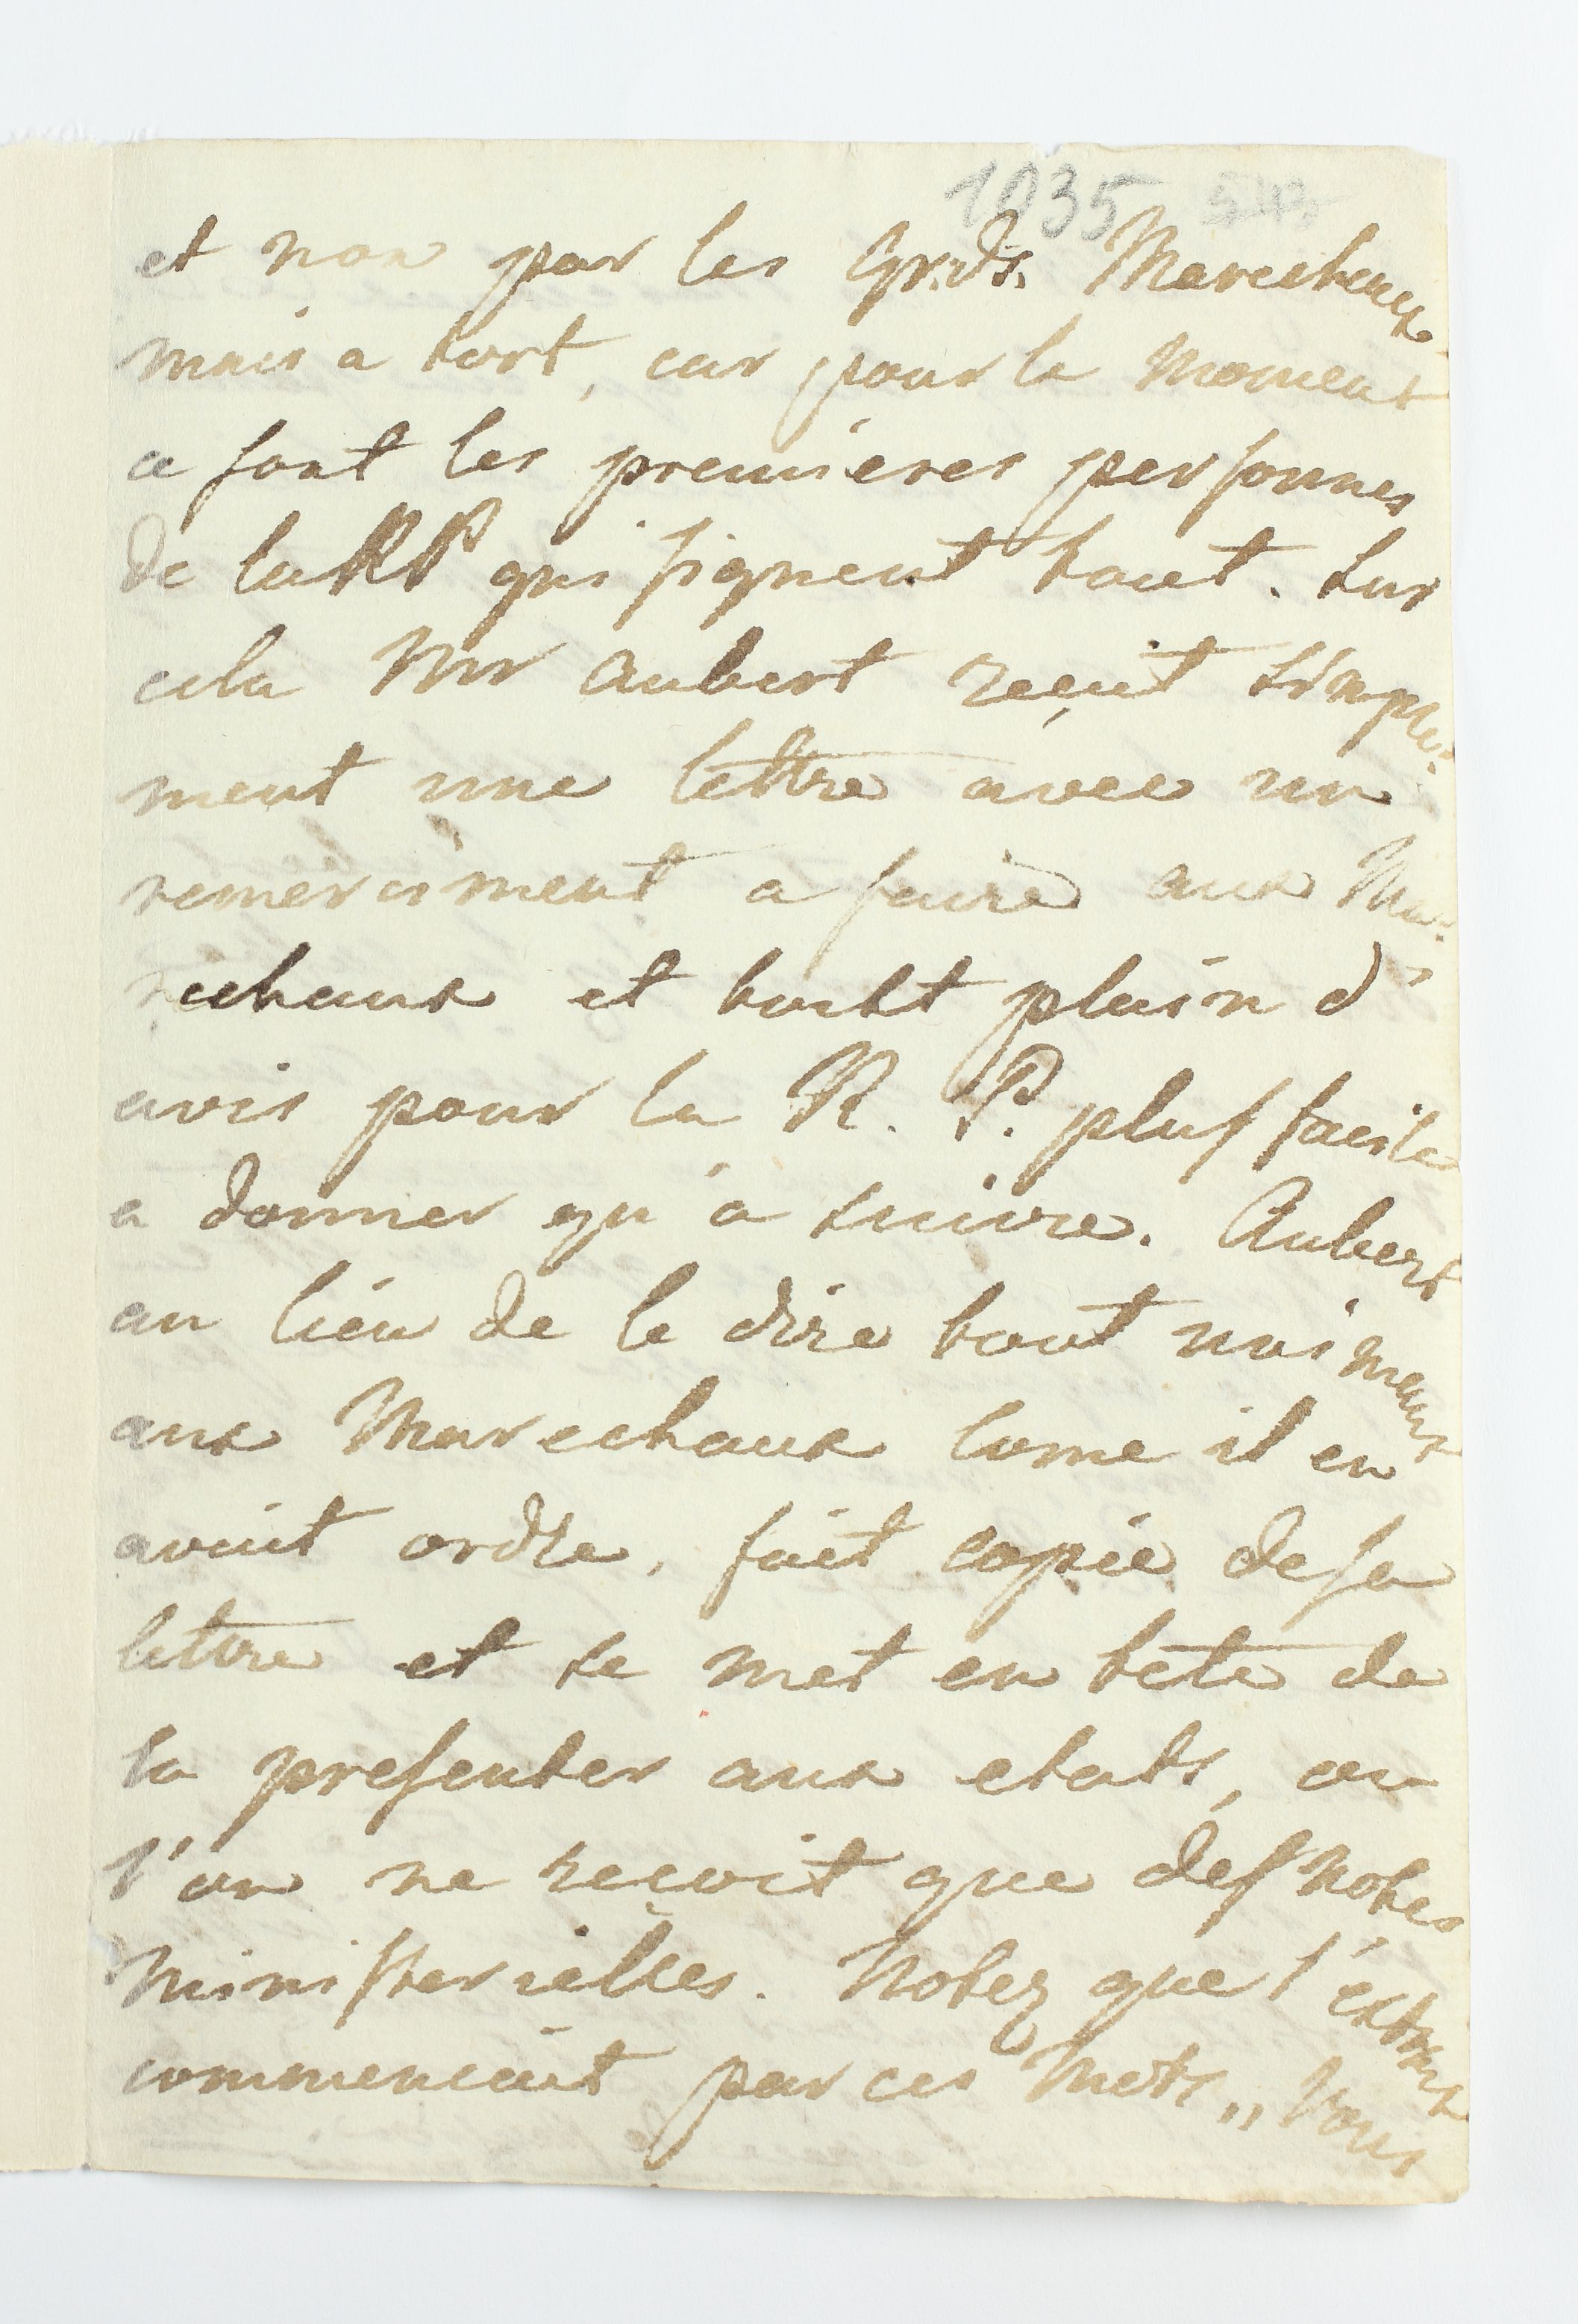 1035 543
et non par les Grds. Marechaux
mais a tort, car pour le moment
ce sont les premieres personnes
de la RP qui signent tout. Sur
cela Mr Aubert reçut simple-
ment une lettre avec un
remerciment a faire aux Ma-
rechaux et tout plain d'
avis pour la R. P. plus facile
a donner qu'a suivre. Aubert
au lieu de le dire tout uniment
aux Marechaux come il en
avait ordre, fait copie de sa
lettre et se met en tete de
la presenter aux etats, ou
l'on ne reçoit que des notes
ministerielles. Notez que l'extrait
commencait par ces mots „ Vous